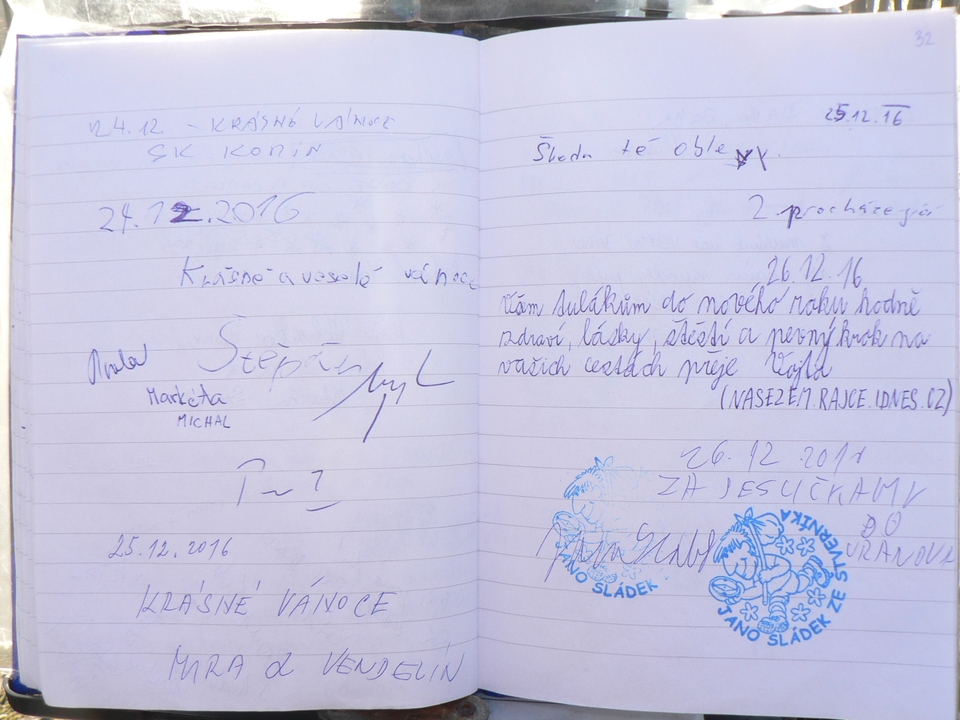 24.12 - KRÁSNÉ VÁNOCE
SK KOMÍN
24.12.2016
Krásné a veselé vánoce
Štěpán
Markéta
MICHAL
25.12.2016
KRÁSNÉ VÁNOCE
MIRA & VENDELÍN
32
25.12.16
Škoda té oble
2 procházející
26.12.16
Vám tulákům do nového roku hodně
zdraví, lásky, štěstí a pevný krok na
vašich cestách přeje Vojta
(NASEZEM.RAJCE.IDNES.CZ)
26.12 201
ZA JESLIČKAMI
DO
VRANOVA
JANO SLÁDEK
JÁNO SLÁDEK ZE STVERNÍKA